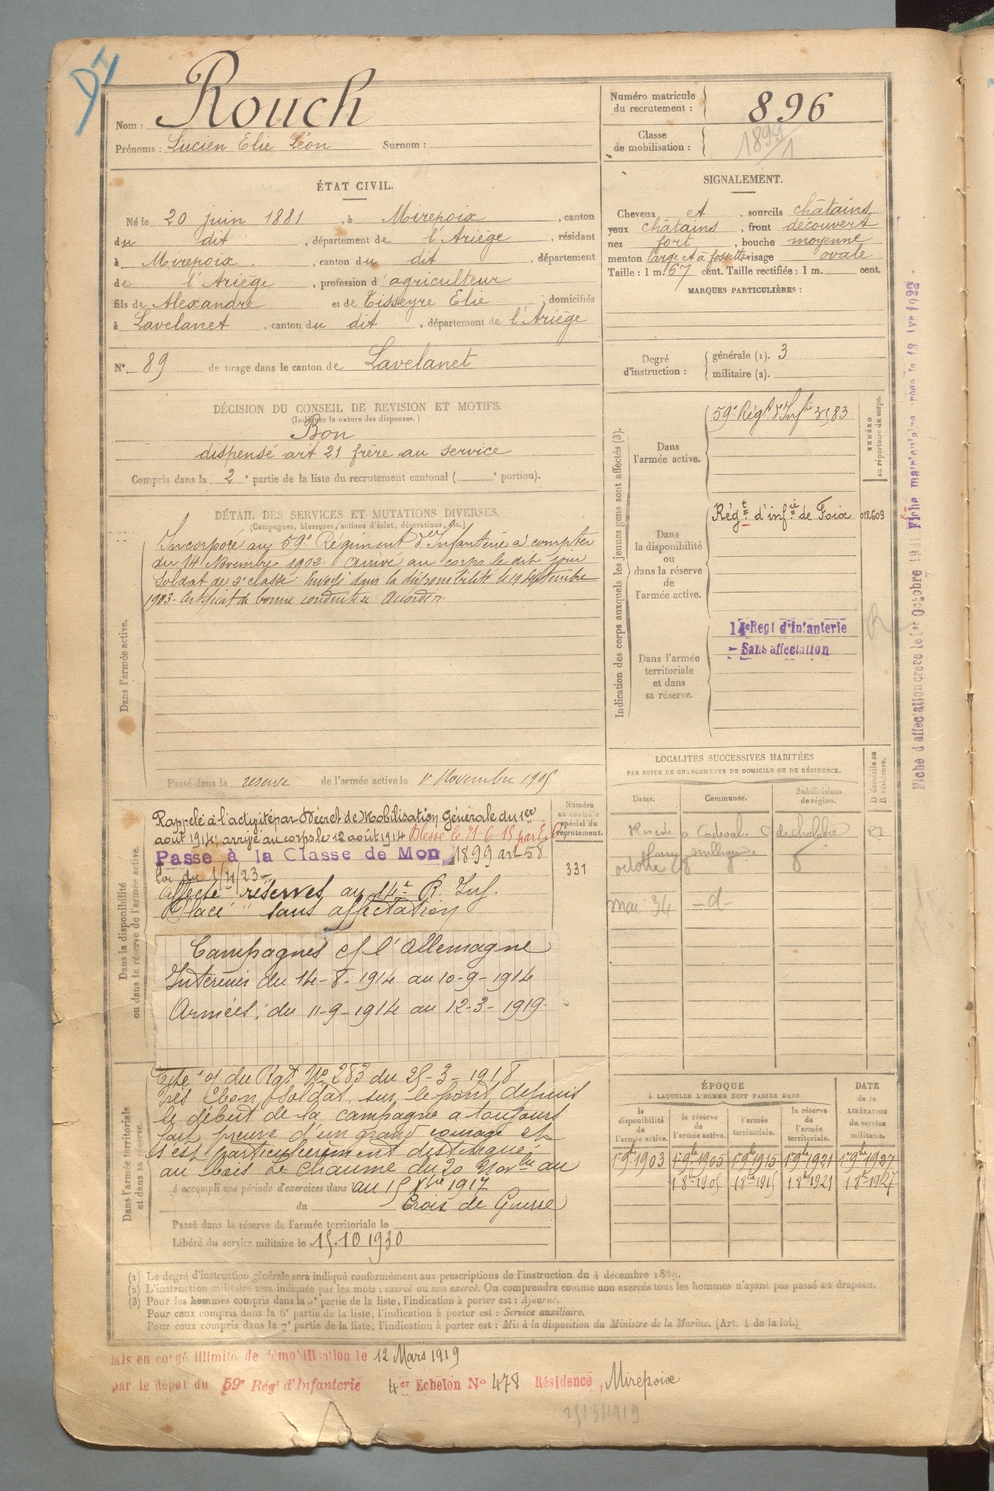 Rouch
Nom :
Prénoms : Lucien Elie Léon Surnom :
Numéro matricule du recrutement : 896
Classe de mobilisation : 1899/1
ÉTAT CIVIL.
Né le 20 juin 1881, à Mirepoix, canton
du dit, département de l'Ariège, résidant
à Mirepoix, canton du dit, département
de l'Ariège, profession d'agriculteur
fils de Alexandre et de Tisseyre Elie, domiciliés
à Lavelanet, canton du dit, département de l'Ariège
N° 89 de tirage dans le canton de Lavelanet
SIGNALEMENT.
Cheveux et sourcils châtains
yeux châtains, front découvert
nez fort, bouche moyenne
menton large et à fossette visage ovale
Taille : 1 m. 67 cent. Taille rectifiée : 1 m. cent.
MARQUES PARTICULIÈRES :
Degré d'instruction : générale (1). 3
militaire (2).
DÉCISION DU CONSEIL DE REVISION ET MOTIFS.
(Indiquer la nature des dispenses.)
Bon
dispensé art 21 frère au service
Compris dans la 2e partie de la liste du recrutement cantonal ( portion).
DÉTAIL DES SERVICES ET MUTATIONS DIVERSES.
(Campagnes, blessures, actions d'éclat, décorations, etc.)
Dans l'armée active.
Incorporé au 59e Régiment d'Infanterie à compter
du 14 Novembre 1902. Arrivé au corps le dit jour
Soldat de 2e classe. Envoyé dans la disponibilité le 19 septembre
1903. Certificat de bonne conduite Accordé.
Passé dans la réserve de l'armée active le 1er Novembre 1905
Indication des corps auxquels les jeunes gens sont affectés (3).
NUMÉRO au répertoire du corps.
Dans l'armée active.
59e Régt d'Infie 3583
Dans la disponibilité ou dans la réserve de l'armée active.
Régt d'infie de Foix 012.603
Dans l'armée territoriale et dans sa réserve.
14e Regt d'Infanterie
Sans affectation
Dans la disponibilité ou dans la réserve de l'armée active.
Numéro au contrôle spécial du recrutement.
331
Rappelé à l'activité par Décret de Mobilisation Générale du 1er
août 1914, arrivé au corps le 12 août 1914 Blessé le 21-6-15 par
Passé à la Classe de Mon 1899 art 58
loi du 1/4/23
Affecté réserves au 14e R. Inf.
Placé " sans affectation
Campagnes c/ l'Allemagne
Intérieur du 14-8-1914 au 10-9-1914
Armées : du 11-9-1914 au 12-3-1919
Dans l'armée territoriale et dans sa réserve.
Cité o/ du Rgt No 283 du 25-3-1918
Très bon Soldat, sur le pont depuis
le début de la campagne a toujours
fait preuve d'un grand courage et
s'est particulièrement distingué
au bois Le Chaume du 20 Novbre au
a accompli une période d'exercices dans au 15 Xbre 1917
du Croix de Guerre
Passé dans la réserve de l'armée territoriale le
Libéré du service militaire le 15.10.1930
LOCALITÉS SUCCESSIVES HABITÉES
PAR SUITE DE CHANGEMENTS DE DOMICILE OU DE RÉSIDENCE.
Dates. Communes. Subdivisions de région. D domicile ou R résidence.
mai 34 -d-
ÉPOQUE
À LAQUELLE L'HOMME DOIT PASSER DANS
la disponibilité de l'armée active. la réserve de l'armée active. l'armée territoriale. la réserve de l'armée territoriale.
DATE de la LIBÉRATION du service militaire.
1 9bre 1903 1 9bre 1905 1 9bre 1915 1 9bre 1921 1 9bre 1927
1 8bre 1905 1 8bre 1915 1 8bre 1921 1 8bre 1927
(1) Le degré d'instruction générale sera indiqué conformément aux prescriptions de l'instruction du 4 décembre 1889.
(2) L'instruction militaire sera indiquée par les mots : exercé ou non exercé. On comprendra comme non exercés tous les hommes n'ayant pas passé au drapeau.
(3) Pour les hommes compris dans la 5e partie de la liste, l'indication à porter est : Ajourné.
Pour ceux compris dans la 6e partie de la liste, l'indication à porter est : Service auxiliaire.
Pour ceux compris dans la 7e partie de la liste, l'indication à porter est : Mis à la disposition du Ministre de la Marine. (Art. 4 de la loi.)
Mis en congé illimité de démobilisation le 12 Mars 1919
par le dépôt du 59e Régt d'Infanterie 4er Echelon No 478 Résidence, Mirepoix
25/3/1919